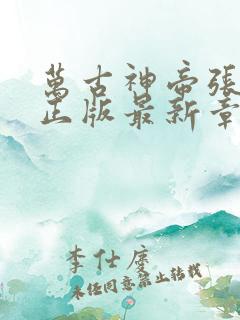 萬古神帝張
正版最新章
李仕度
未经同意禁止转载